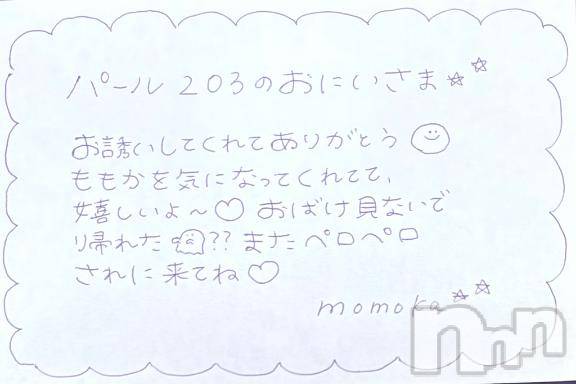 パール203のおにいさま☆☆
お誘いしてくれてありがとう
ももかを気になってくれてて、
嬉しいよ～♡ おばけ見ないで
帰れた??またペロペロ
されに来てね♡
momoka☆☆
nnn